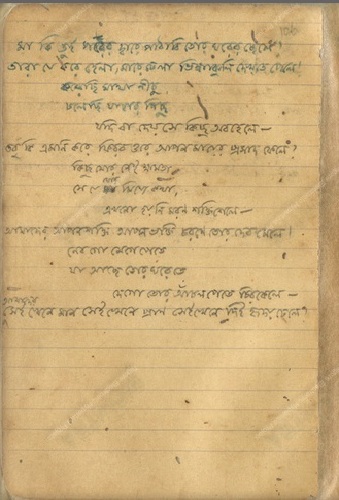 মা কি তুই পরের দ্বারে পাঠাবি তোর ঘরের ছেলে?
তারা যে করে হেলা, মারে ঢেলা ভিক্ষাঝুলি দেখতে পেলে!
করেছি মাথা নীচু
চলেছি যাহার পিছু
যদি বা দেয় সে কিছু অবহেলে—
তবু কি এমনি করে ফিরব ওরে আপন মায়ের প্রসাদ ফেলে?
কিছু মোর নেই ক্ষমতা
সে যে ঘোর মিথ্যে কথা,
এখনো হয়নি মরণ শক্তিশেলে—
আমাদের আপন শক্তি আপন ভক্তি চরণে তোর দেব মেলে!
নেব গো মেগে পেতে
যা আছে তোর ঘরেতে
দে গো তোর আঁচল পেতে চিরকেলে—
আমাদের সেইখেনে মান সেইখেনে প্রাণ সেইখেনে দিই হৃদয় ঢেলে!